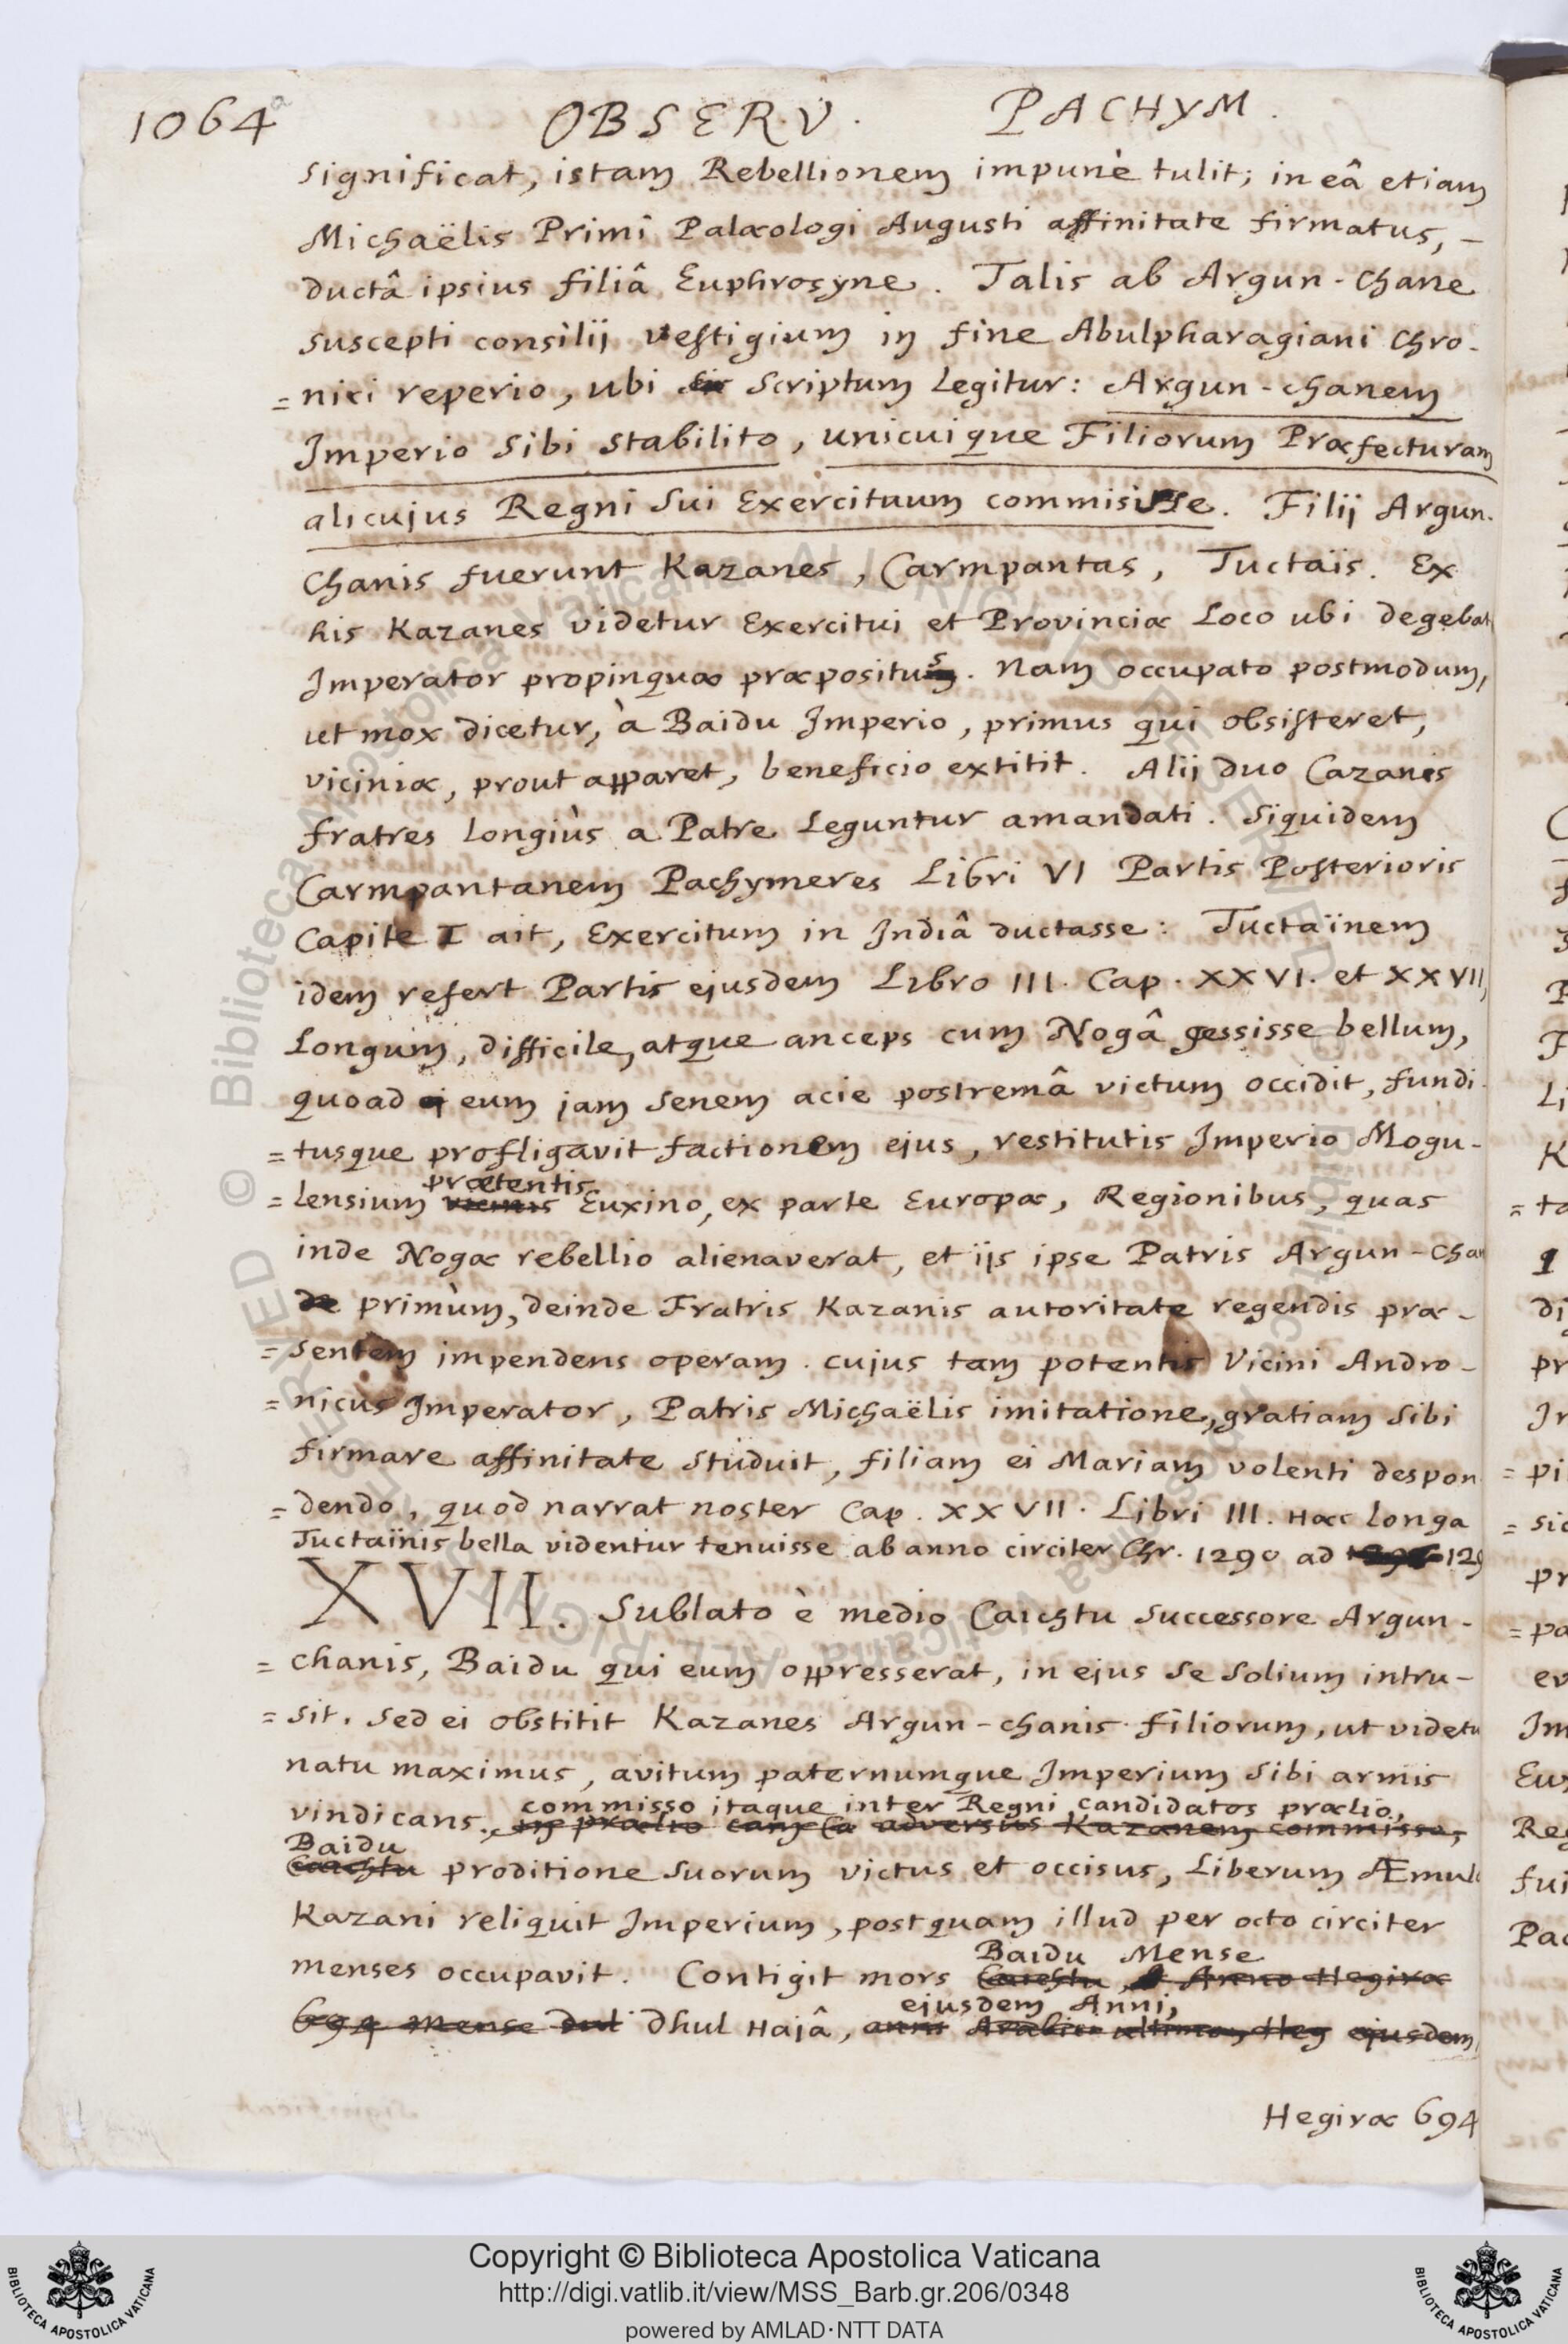 1064a OBSERV. PACHYM.
significat, istam Rebellionem impunè tulit; in eâ etiam
Michaëlis Primi Palæologi Augusti affinitate firmatus, -
ductâ ipsius filiâ Euphrosyne. Talis ab Argun-Chane
suscepti consilij vestigium in fine Abulpharagiani Chro-
=nici reperio, ubi scriptum legitur: Argun-chanem
Imperio sibi stabilito, unicuique Filiorum Præfecturam
alicujus Regni sui Exercituum commisisse. Filij Argun.
Chanis fuerunt Kazanes, Carmpantas, Tuctaïs. Ex
his Kazanes videtur Exercitui et Provinciæ Loco ubi degebat
Imperator propinquæ præpositus. Nam occupato postmodum,
ut mox dicetur, à Baidu Imperio, primus qui obsisteret,
viciniæ, prout apparet, beneficio extitit. Alij duo Cazanis
fratres longiùs a Patre leguntur amandati. Siquidem
Carmpantanem Pachymeres Libri VI Partis Posterioris
Capite I ait, Exercitum in Indiâ ductasse: Tuctaïnem
idem refert Partis ejusdem Libro III. Cap. XXVI. et XXVII,
Longum, difficile, atque anceps cum Nogâ gessisse bellum,
quoad eum jam senem acie postremâ victum occidit, fundi-
=tusque profligavit factionem ejus, restitutis Imperio Mogu-
prætentis
=lensium vicinis Euxino, ex parte Europæ, Regionibus, quas
inde Nogæ rebellio alienaverat, et ijs ipse Patris Argun-Chan
de primùm, deinde Fratris Kazanis autoritate regendis præ-
=sentem impendens operam. cujus tam potentis Vicini Andro-
=nicus Imperator, Patris Michaëlis imitatione, gratiam sibi
firmare affinitate studuit, filiam ei Mariam volenti despon
=dendo, quod narrat noster Cap. XXVII. Libri III. Hæc longa
Tuctaïnis bella videntur tenuisse ab anno circiter Chr. 1290 ad 129
XVII. Sublato è medio Caichtu successore Argun-
=chanis, Baidu qui eum oppresserat, in ejus se solium intru-
=sit. Sed ei obstitit Kazanes Argun-chanis filiorum, ut videtu
natu maximus, avitum paternumque Imperium sibi armis
commisso itaque inter Regni candidatos prælio,
vindicans., in prælio adversus Kazanem commisso,
Baidu
Caichtu proditione suorum victus et occisus, liberum Æmulo
Kazani reliquit Imperium, postquam illud per octo circiter
Baidu Mense
menses occupavit. Contigit mors Caichtu, Anno Hegiræ
ejusdem Anni,
694 Mense dul dhul Hajâ, anni Arabici ultimo, Heg ejusdem
Hegiræ 694
Copyright © Biblioteca Apostolica Vaticana
http://digi.vatlib.it/view/MSS_Barb.gr.206/0348
powered by AMLAD·NTT DATA
BIBLIOTECA APOSTOLICA VATICANA
BIBLIOTECA APOSTOLICA VATICANA